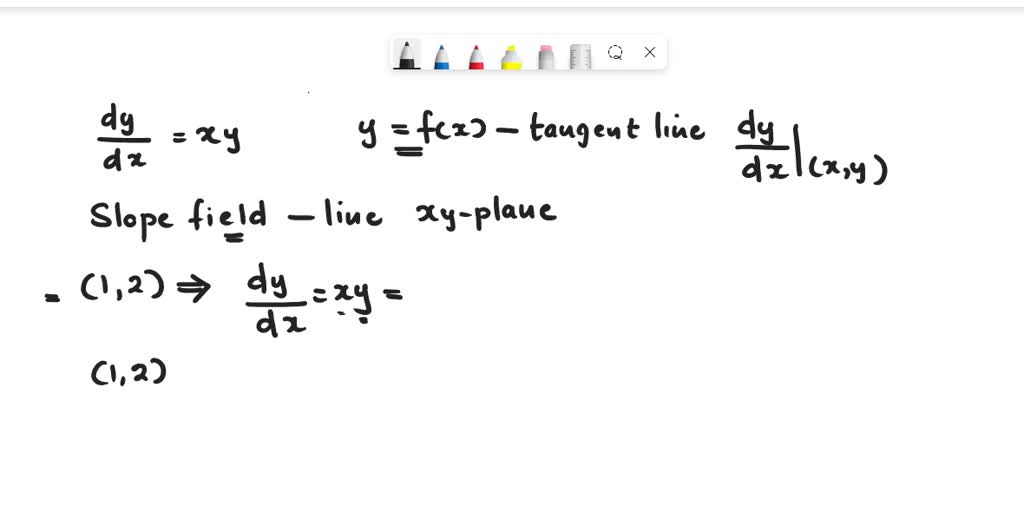 dy/dx = xy y = f(x) – tangent line dy/dx|(x,y)
Slope field – line xy-plane
= (1,2) ⇒ dy/dx = xy =
(1,2)